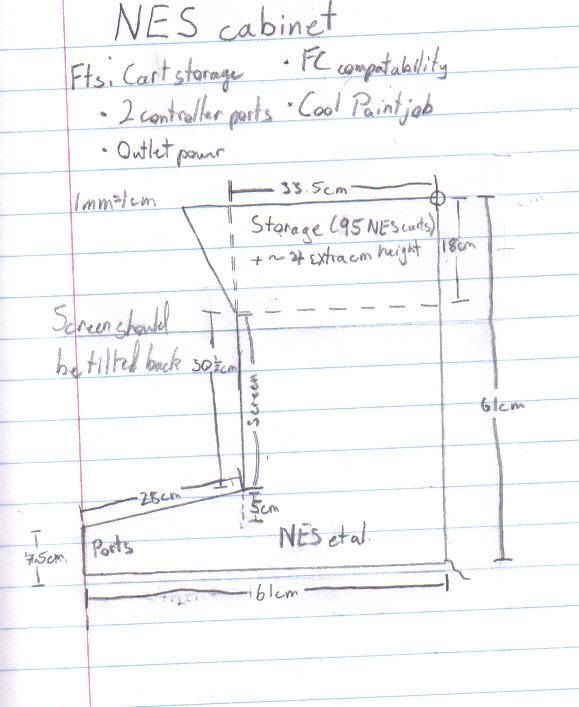 NES cabinet
Fts: Cart storage · FC compatability
· 2 controller ports · Cool Paintjob
· Outlet power
1mm=1cm
33.5cm
Storage (95 NES carts)
extra cm height
18cm
Screen should
be tilted back
30½cm
Screen
61cm
28cm
5cm
7.5cm
Ports
NES et al.
61cm